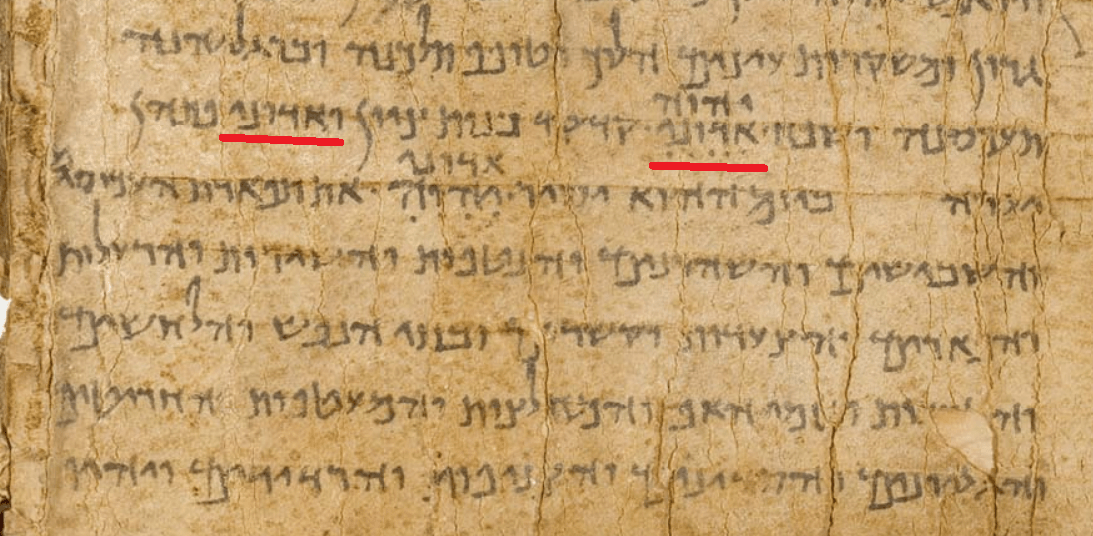 גרון ומשקרות עיניהם הלוך וטופף תלכנה וברגליהנה
יהוה
תעכסנה ושפח אדוני קודקוד בנות ציון ואדוני פתהן
אדוני
יערה ביום ההוא יסיר יהוה את תפארת העכיסים
והשבישים והשהרונים והנטפות והשירות והרעלות
והפארים והצעדות והקשרים ובתי הנפש והלחשים
והטבעות ונזמי האף והמחלצות והמעטפות והחריטים
והגליונים והסדינים והצניפות והרדידים ויהיו